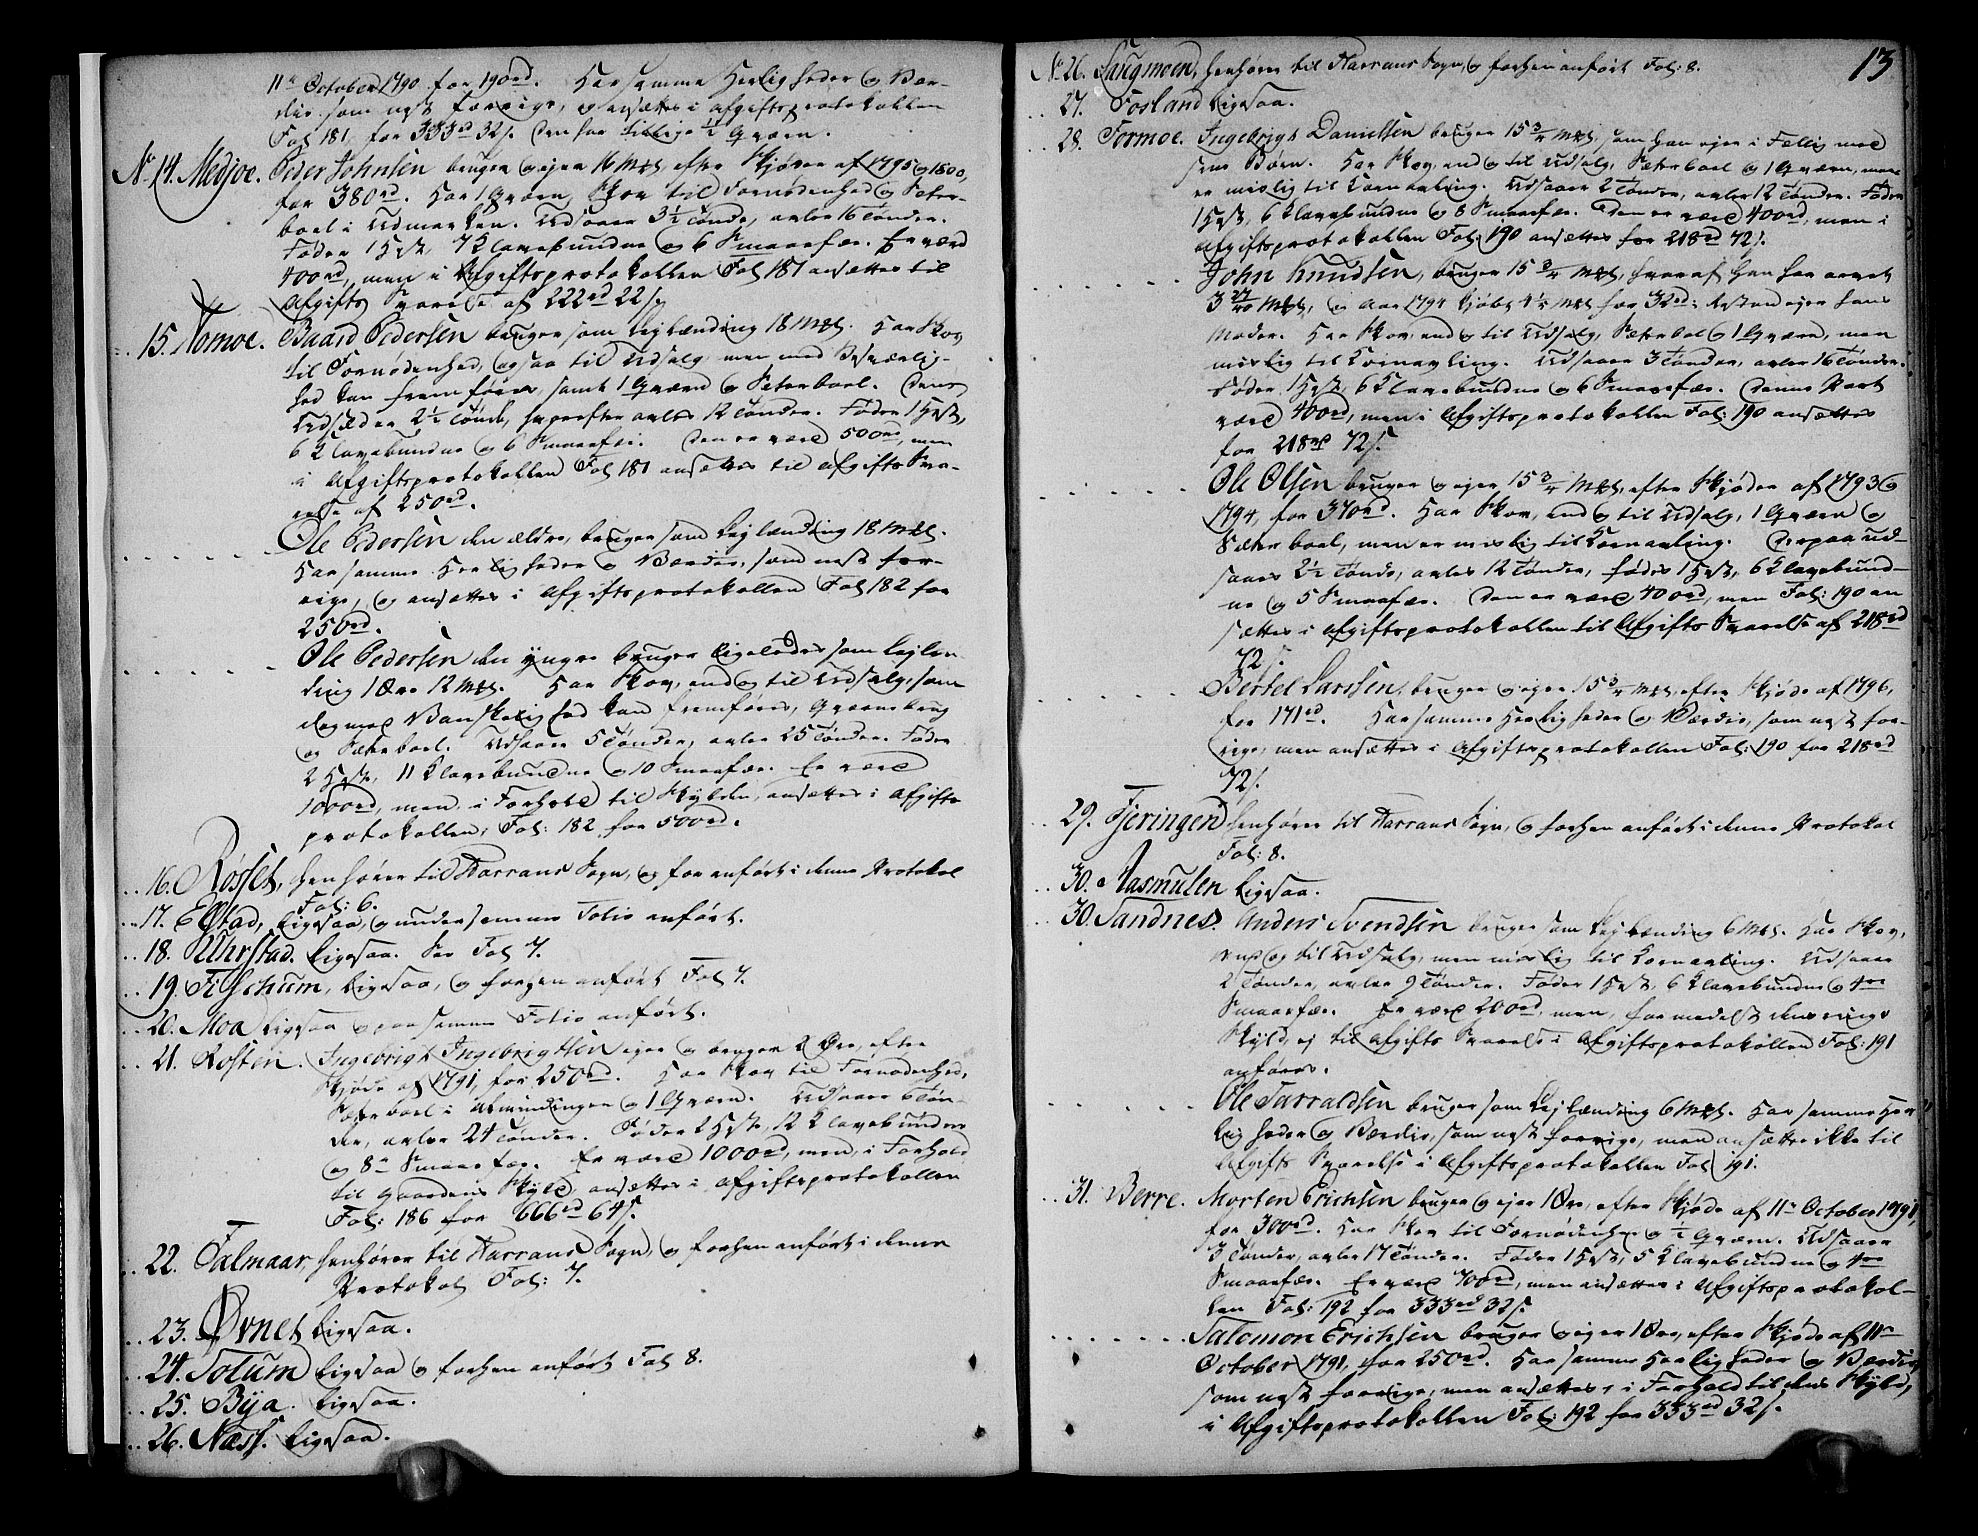 11te October 1790 for 190rd. Har samme Herligheder og Vær-
die som næst forrige, og ansættes i Afgiftsprotokollen
Fol 181 for 333rd 32s. Den har tillige ½ Qværn.
No 14. Medjoe. Peder Johnsen bruger og ejer 16 Mkl, efter Skjøder af 1795 og 1800,
for 380rd. Har 1 Qværn, Skov til Fornødenhed og Sæter-
boel i Udmarken. Udsaaer 3½ Tønde, avler 16 Tønder.
Føder 1 Hæst, 7 Klavebundne og 6 Smaafæe. Er værd
400rd, men i Afgiftsprotokollen Fol 181 ansættes til
Afgifts Svarelse af 222rd 22s.
15. Nomoe. Baard Pedersen bruger som Lejlænding 18 Mkl. Har Skov
til Fornødenhed, ogsaa til Udsalg, men med Besværlig-
hed kan fremføres, samt 1 Qværn og Sæterboel. Dens
Udsæd er 2½ Tønde, hvorefter avles 12 Tønder. Føder 1 Hæst,
6 Klavebundne og 6 Smaafæe. Den er værd 500rd, men
i Afgiftsprotokollen Fol 181 ansættes til Afgifts Sva-
relse af 250rd.
Ole Pedersen den ældre, bruger som Lejlænding 18 Mkl.
Har samme Herligheder og Værdie, som næst for-
rige, og ansættes i Afgiftsprotokollen Fol 182 for
250rd.
Ole Pedersen den yngre bruger ligeledes som Lejlæn-
ding 1 Øre 12 Mkl. Har Skov, end og til Udsalg, som
dog med Vanskelighed kan fremføres, Qværnebrug
og Sæterboel. Udsaaer 5 Tønder, avler 25 Tønder. Føder
2 Hæste, 11 Klavebundne og 10 Smaafæe. Er værd
1000rd, men i Forhold til Skylden, ansættes i Afgifts-
protokollen, Fol: 182 for 500rd.
16. Røsset, henhører til Harrans Sogn, og foranført i denne Protokol
Fol: 6.
17. Elstad, ligesaa, og under samme Folio anført.
18. Uhrstad. Ligesaa. See Fol 7.
19. Fischum, ligesaa, og forhen anført Fol 7.
20. Moa ligesaa og paa samme Folio anført.
21. Rosten. Ingebrigt Ingebrigtsen ejer og bruger 2 Øre, efter
Skjøde af 1791, for 250rd. Har Skov til Fornødenhed,
Sæterboel i Almindingen og 1 Qværn. Udsaaer 6 Tøn-
der, avler 24 Tønder. Føder 2 Hæste, 12 Klavebundne
og 8te Smaafæe. Er værd 1000rd, men, i Forhold
til Gaardens Skyld, ansættes i Afgiftsprotokollen
Fol: 186 for 666rd 64s.
22. Falmaar, henhører til Harrans Sogn, og forhen anført i denne
Protokol Fol: 7.
23. Ørnet Ligesaa.
24. Totum Ligesaa og forhen anført Fol 8.
25. Bya. Ligesaa.
26. Næss. Ligesaa.
13
No 26. Laugmoen, henhører til Harrans Sogn, og forhen anført Fol: 8.
27. Fosland ligesaa.
28. Formoe. Ingebrigt Danielsen bruger 15¾ Mkl, som han ejer i Fællig med
sine Børn. Har Skov, end og til Udsalg, Sæterboel og 1 Qværn, men
er mislig til Kornavling. Udsaaer 2 Tønder, avler 12 Tønder. Føder
1 Hæst, 6 Klavebundne og 8 Smaafæe. Den er værd 400rd, men i
Afgiftsprotokollen Fol: 190 ansættes for 218rd 72s.
John Knudsen, bruger 15¾ Mkl, hvoraf han har arvet
3 27/40 Mkl, og Aar 1794 kjøbt 4¼ Mkl for 32rd: Resten ejer hans
Moder. Har Skov, end og til Udsalg, Sæterboel og 1 Qværn, men
mislig til Kornavling. Udsaaer 3 Tønder, avler 16 Tønder.
Føder 1 Hæst, 6 Klavebundne og 6 Smaafæe. Denne Part
værd 400rd, men i Afgiftsprotokollen Fol: 190 ansættes
for 218rd 72s.
Ole Olsen bruger og ejer 15¾ Mkl, efter Skjøder af 1793 og
1794, for 370rd. Har Skov, end og til Udsalg, 1 Qværn og
Sæterboel, men er mislig til Kornavling. Derpaa ud-
saaes 2½ Tønde, avles 12 Tønder, fødes 1 Hæst, 6 Klavebund-
ne og 5 Smaafæe. Den er værd 400rd, men Fol: 190 an
sættes i Afgiftsprotokollen til Afgifts Svarelse af 218rd
72s.
Bertel Larssen, bruger og ejer 15¾ Mkl, efter Skjøde af 1796,
for 171rd. Har samme Herligheder og Værdie, som næst for-
rige, men ansættes i Afgiftsprotokollen Fol: 190 for 218rd
72s.
29. Fjeringen henhører til Harrans Sogn, og forhen anført i denne Protokol
Fol: 8.
30. Aasmulen Ligesaa.
30. Sandnes. Anders Svendsen bruger som Lejlænding 6 Mkl. Har Skov,
end og til Udsalg, men mislig til Kornavling. Udsaaer
2 Tønder, avler 9 Tønder. Føder 1 Hæst, 6 Klavebundne og 4re
Smaafæe. Er værd 200rd, men, formedelst dens ringe
Skyld, ej til Afgifts Svarelse i Afgiftsprotokollen Fol: 191
anføres.
Ole Tarraldsen bruger som Lejlænding 6 Mkl. Har samme Her
ligheder og Værdie, som næst forrige, men ansættes ikke til
Afgifts Svarelse i Afgiftsprotokollen Fol 191.
31. Berre. Morten Erichsen bruger og ejer 1 Øre, efter Skjøde af 11te October 1791,
for 300rd. Har Skov til Fornødenhed og ½ Qværn. Udsaaer
3 Tønder, avler 17 Tønder. Føder 1 Hæst, 5 Klavebundne og 4re
Smaafæe. Er værd 700rd, men ansættes i Afgiftsprotokol-
len Fol: 192 for 333rd 32s.
Salomon Erichsen bruger og ejer 1 Øre, efter Skjøde af 11te
October 1791, for 250rd. Har samme Herligheder og Værdie,
som næst forrige, men ansættes, i Forhold til dens Skyld,
i Afgiftsprotokollen Fol: 192 for 333rd 32s.